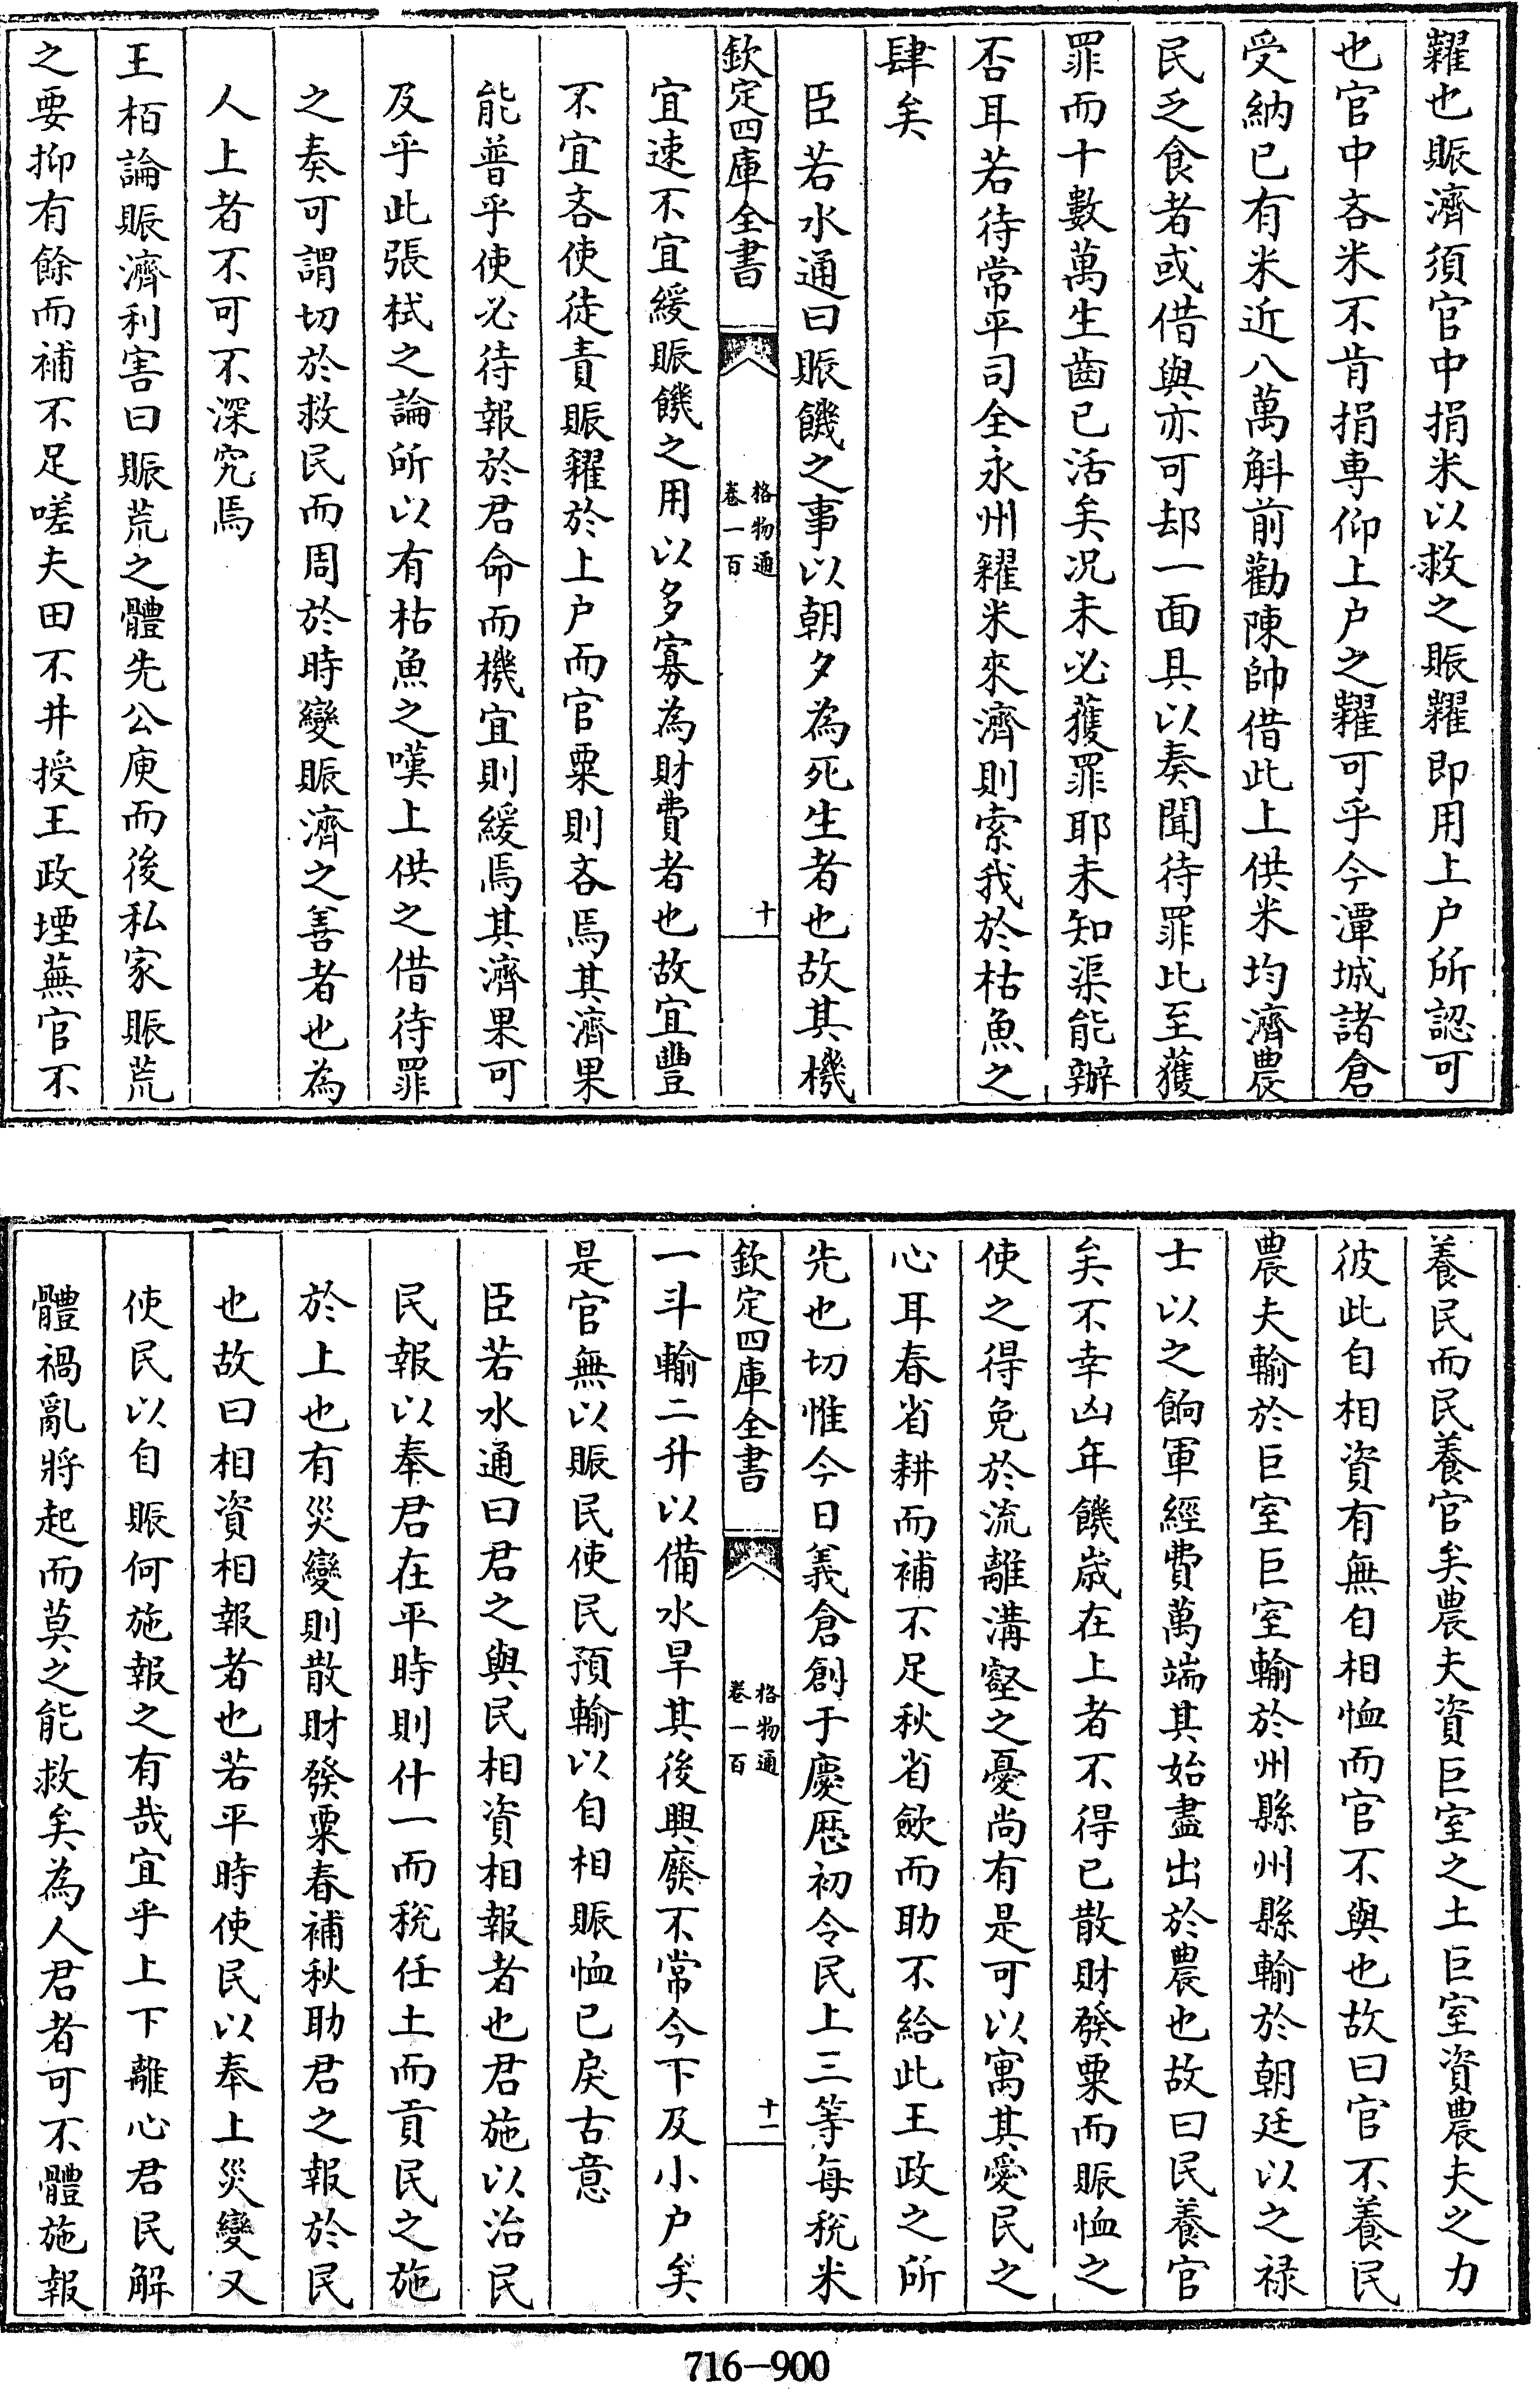 糶也賑濟須官中捐米以救之賑糶即用上户所認可
也官中吝米不肯捐専仰上户之糶可乎今潭城諸倉
受納已有米近八萬斛前勸陳帥借此上供米均濟農
民乏食者或借與亦可却一面具以奏聞待罪比至獲
罪而十數萬生齒已活矣况未必獲罪耶未知渠能辦
否耳若待常平司全永州糴米來濟則索我於枯魚之
肆矣
臣若水通曰賑饑之事以朝夕為死生者也故其機
宜速不宜緩賑饑之用以多寡為財費者也故宜豐
不宜吝使徒責賑糴於上户而官粟則吝焉其濟果
能普乎使必待報於君命而機宜則緩焉其濟果可
及乎此張栻之論所以有枯魚之嘆上供之借待罪
之奏可謂切於救民而周於時變賑濟之善者也為
人上者不可不深究焉
王栢論賑濟利害曰賑荒之體先公庾而後私家賑荒
之要抑有餘而補不足嗟夫田不井授王政堙蕪官不
欽定四庫全書
格物通
卷一百
十
養民而民養官矣農夫資巨室之土巨室資農夫之力
彼此自相資有無自相恤而官不與也故曰官不養民
農夫輸於巨室巨室輸於州縣州縣輸於朝廷以之禄
士以之餉軍經費萬端其始盡出於農也故曰民養官
矣不幸凶年饑歲在上者不得已散財發粟而賑恤之
使之得免於流離溝壑之憂尚有是可以寓其愛民之
心耳春省耕而補不足秋省歛而助不給此王政之所
先也切惟今日義倉創于慶厯初令民上三等每稅米
一斗輸二升以備水旱其後興廢不常今下及小户矣
是官無以賑民使民預輸以自相賑恤已戾古意
臣若水通曰君之與民相資相報者也君施以治民
民報以奉君在平時則什一而稅任土而貢民之施
於上也有災變則散財發粟春補秋助君之報於民
也故曰相資相報者也若平時使民以奉上災變又
使民以自賑何施報之有哉宜乎上下離心君民解
體禍亂將起而莫之能救矣為人君者可不體施報
欽定四庫全書
格物通
卷一百
十一
716-900